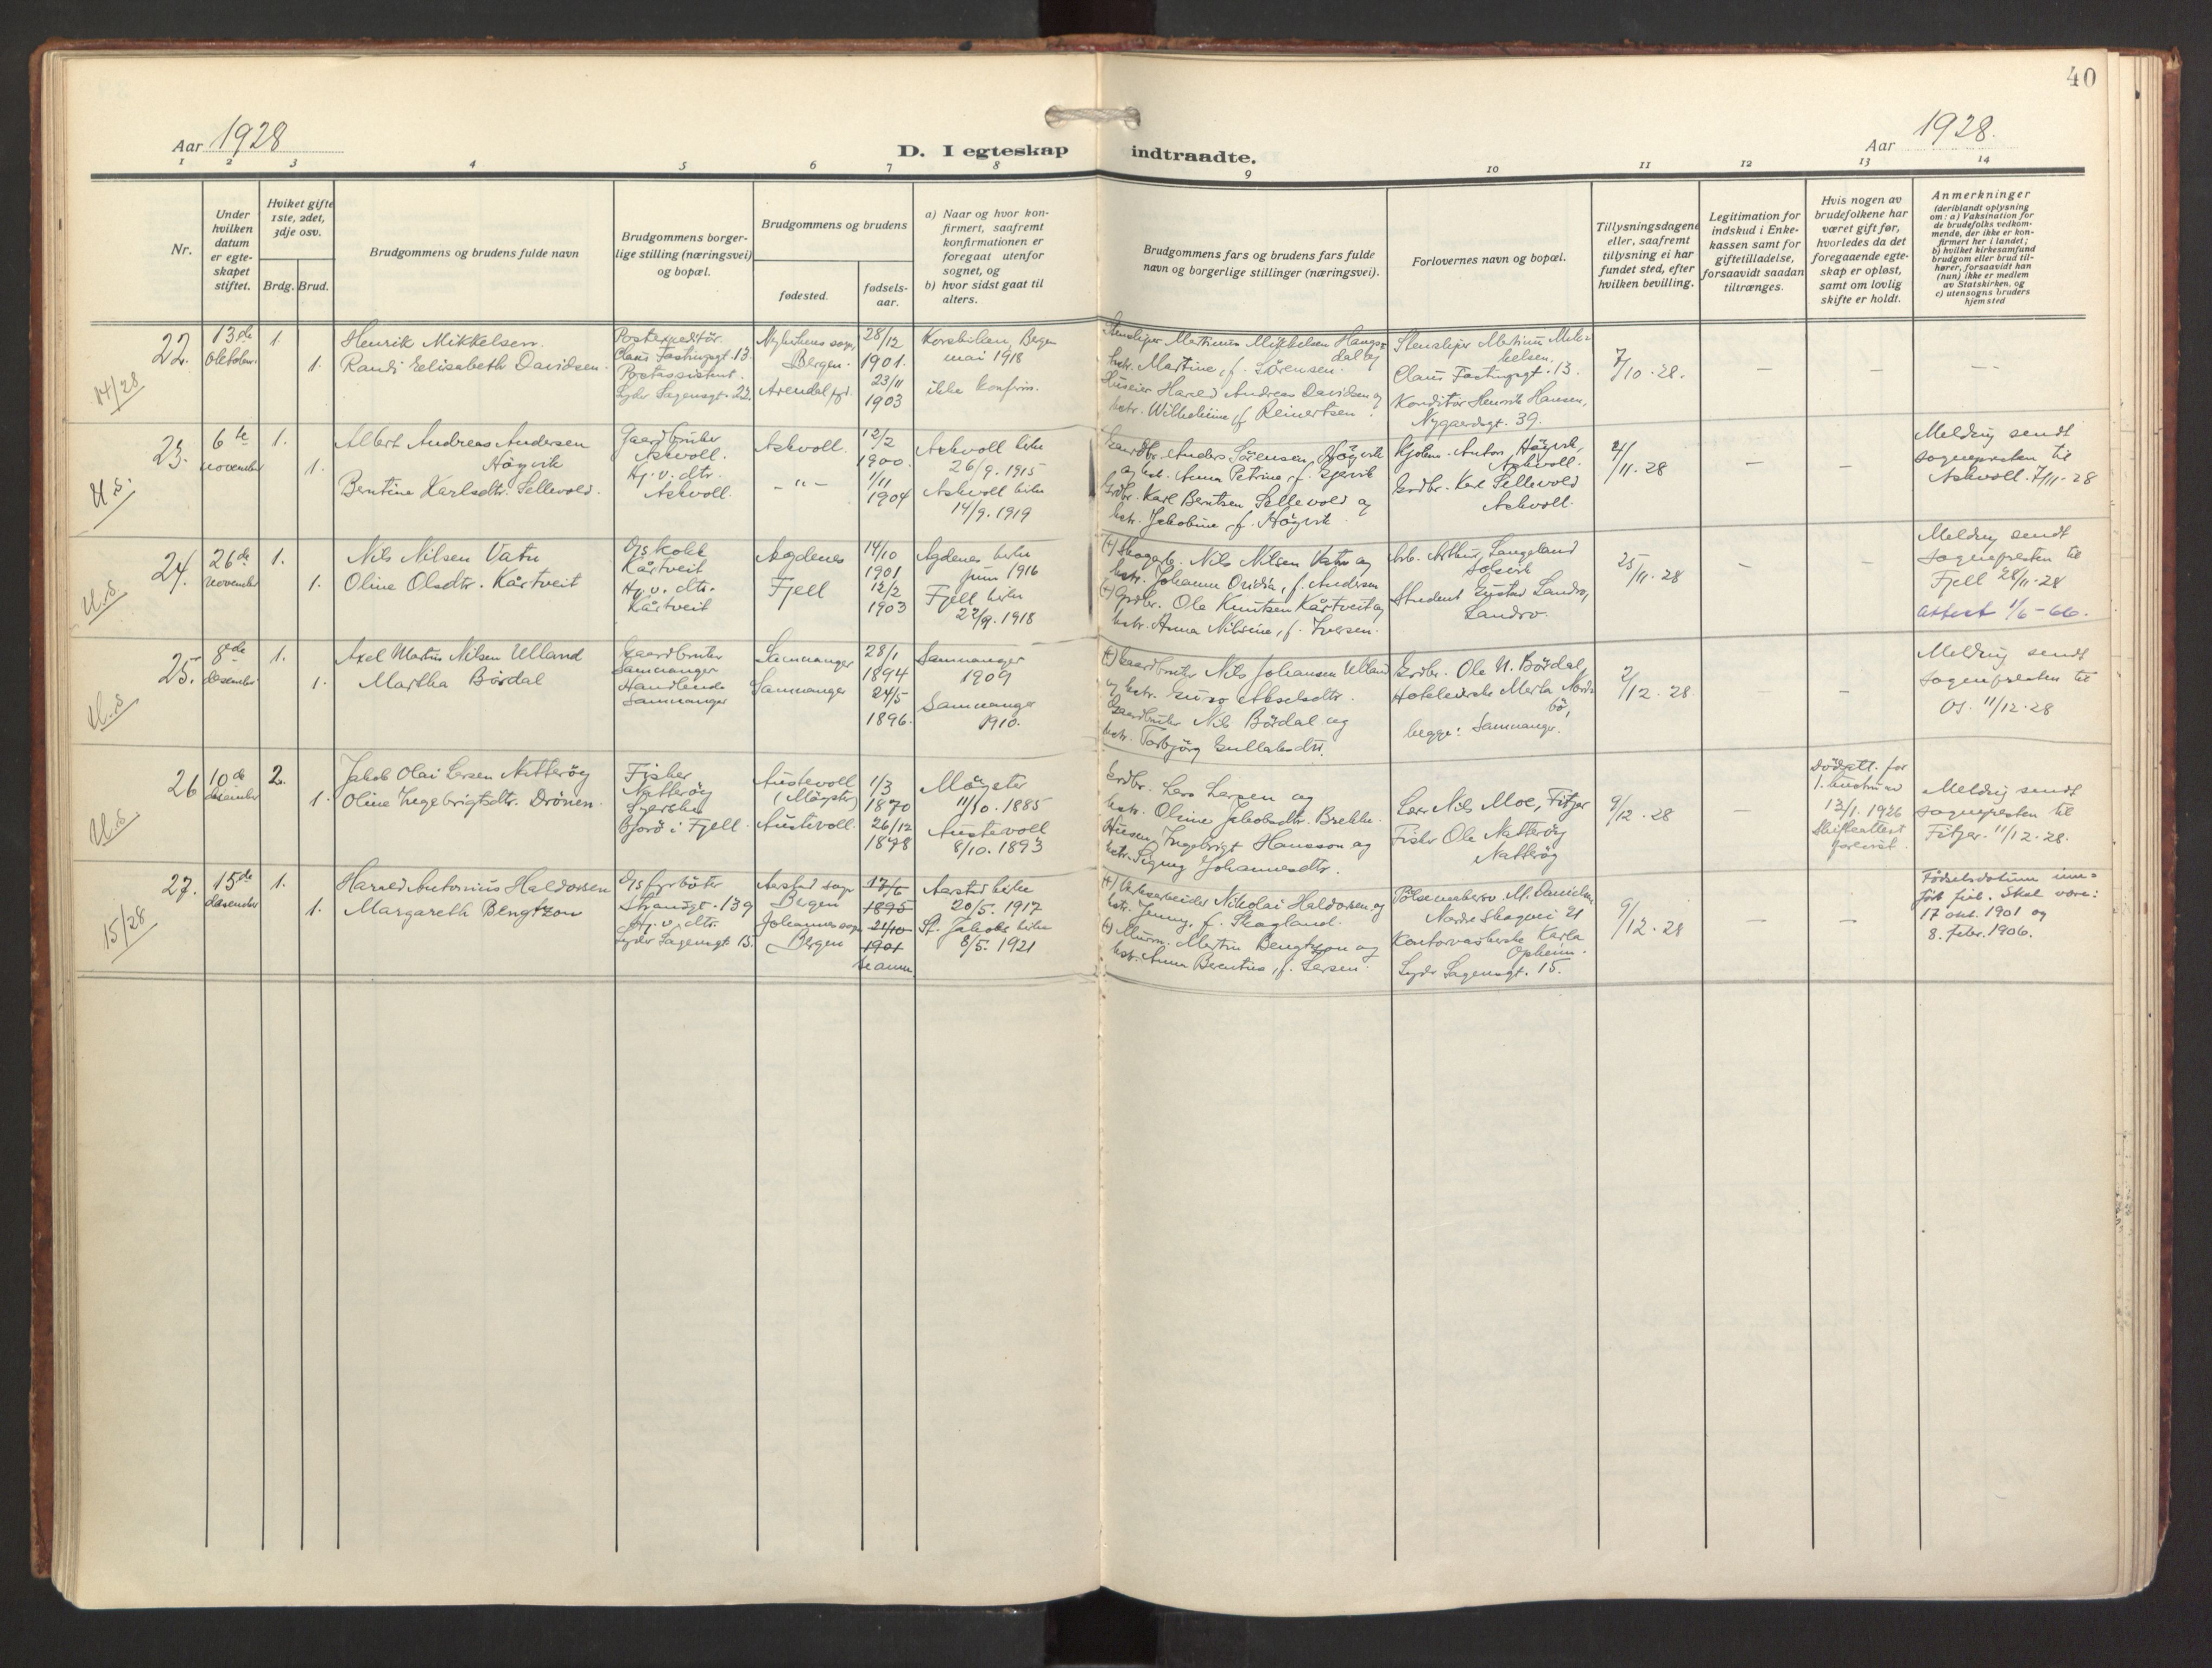 40
Aar 1928
D. I egteskap indtraadte.
Aar 1928.
1 2 3 4 5 6 7 8 9 10 11 12 13 14
Nr.
Under hvilken datum er egteskapet stiftet.
Hviket gifte 1ste, 2det, 3dje osv.
Brdg. Brud.
Brudgommens og brudens fulde navn
Brudgommens borgerlige stilling (næringsvei) og bopæl.
Brudgommens og brudens
fødested.
fødselsaar.
a) Naar og hvor konfirmert, saafremt konfirmationen er foregaat utenfor sognet, og
b) hvor sidst gaat til alters.
Brudgommens fars og brudens fars fulde navn og borgerlige stillinger (næringsvei).
Forlovernes navn og bopæl.
Tillysningsdagene eller, saafremt tillysning ei har fundet sted, efter hvilken bevilling.
Legitimation for indskud i Enkekassen samt for giftetilladelse, forsaavidt saadan tiltrænges.
Hvis nogen av brudefolkene har været gift før, hvorledes da det foregaaende egteskap er opløst, samt om lovlig skifte er holdt.
Anmerkninger
(deriblandt oplysning om: a) Vaksination for de brudefolks vedkommende, der ikke er konfirmert her i landet; b) hvilket kirkesamfund brudgom eller brud tilhører, forsaavidt han (hun) ikke er medlem av Statskirken, og c) utensogns bruders hjemsted
22. 14/28
13de oktober
1.
1.
Henrik Mikkelsen.
Randi Elisabeth Davidsen.
Postexpeditör.
Claus Fastingsgt. 13.
Postassistent.
Lyder Sagensgt. 22.
Nykirkens sogn, Bergen.
Arendal
28/12 1901.
23/11 1903
Korskirken, Bergen mai 1918
ikke konfirm.
Stensliper Martinus Mikkelsen Haugsdal og
hstr. Martine, f. Sörensen.
Huseier Harald Andreas Davidsen og
hstr. Wilhelmine, f. Reinertsen.
Stensliper Martinus Mikkelsen,
Claus Fastingsgt. 13.
Konditor Henrik Hansen,
Nygaardsgt. 39.
7/10. 28.
— — —
23. U.S.
6te november
1.
1.
Albert Andreas Andersen Högvik
Bentine Karlsdtr. Sellevold.
Gaardbruker
Askvoll.
Hj. v. dtr.
Askvoll.
Askvoll.
- " -
12/2 1900.
1/11 1904
Askvoll kirke 26/9. 1915
Askvoll kirke 14/9. 1919
Gaardbr. Anders Sörensen Högvik
og hst. Anna Petrine, f. Gjervik
Grdbr. Karl Bentsen Sellevold og
hstr. Jakobine, f. Högvik.
Anton Högvik,
Askvoll.
Grdbr. Karl Sellevold
Askvoll.
4/11. 28
— —
Melding sendt
sognepresten til
Askvoll. 7/11-28
24. U.S
26de november
1.
1.
Nils Nilsen Vatn
Oline Olsdtr. Kårtveit
Ds kokk
Kårtveit
Hj. v. dtr.
Kårtveit
Agdenes
Fjell
14/10 1901
12/2 1903
Agdenes kirke juni 1916
Fjell kirke 22/9. 1918
(+) Skogarb. Nils Nilsen Vatn og
hstr. Johanna Ovidia, f. Andersen
(+) Grdbr. Ole Knutsen Kårtveit og
hstr. Anna Nilsine, f. Iversen.
Arb. Arthur Langeland
Solsvik
Student Gustav Landro,
Landro.
25/11. 28
— —
Melding sendt
sognepresten til
Fjell 28/11-28
attest 1/6-66.
25. U.S
8de desember
1.
1.
Axel Martin Nilsen Ulland
Martha Bördal
Gaardbruker
Samnanger
Handlende
Samnanger
Samnanger
Samnanger
28/1 1894
24/5 1896.
Samnanger 1909
Samnanger 1910.
(+) Gaardbruker Nils Johansen Ulland
og hstr. Guro Akselsdtr.
Gaardbruker Nils Bördal og
hstr. Torbjörg Gullaksdtr.
Grdbr. Ole N. Bördal,
begge: Samnanger.
2/12. 28
—
Melding sendt
sognepresten til
Os. 11/12. 28
26 U.S
10de desember
2.
1.
Jakob Olai Larsen Natteröy
Oline Ingebrigtsdtr. Drönen.
Fisker
Natteröy
Bjorö i Fjell.
Austevoll (Mögster)
Austevoll.
1/3 1870
26/12 1878
Mögster 11/10. 1885
Austevoll 8/10. 1893
Grdbr. Lars Larsen og
hstr. Oline Jakobsdtr. Brekke.
Husm. Ingebrigt Hansson og
hstr. Signy Johannesdtr.
Lærer Nils Moe, Fitjar
Fisker Ole Natteröy
Natteröy
9/12. 28
—
Dödsatt. for
1. hustru av
13/1. 1926
Skifteattest
forevist.
Melding sendt
sognepresten til
Fitjar. 11/12. 28.
27. 15/28
15de desember
1.
1.
Harald Antonius Haldorsen
Margareth Bengtzon
Ds fyrböter
Strandgt. 139
Hj. v. dtr.
Lyder Sagensgt 15.
Aarstad sogn Bergen
Johannes sogn Bergen
17/6 1895
21/10 1901
se anm.
Aarstad kirke 20/5. 1917
St. Jakobs kirke 8/5. 1921
(+) Verksarbeider Nikolai Haldorsen og
hstr. Jenny, f. Skagland.
(+) Murm. Martin Bengtzon og
hstr. Anna Berentine, f. Larsen.
Pölsemaker M. Danielsen
Nordre Skogvei 21
Karla Opheim.
Lyder Sagensgt. 15.
9/12. 28
— —
Födselsdatum innfört feil. Skal være:
17 okt. 1901 og
8. febr. 1906.